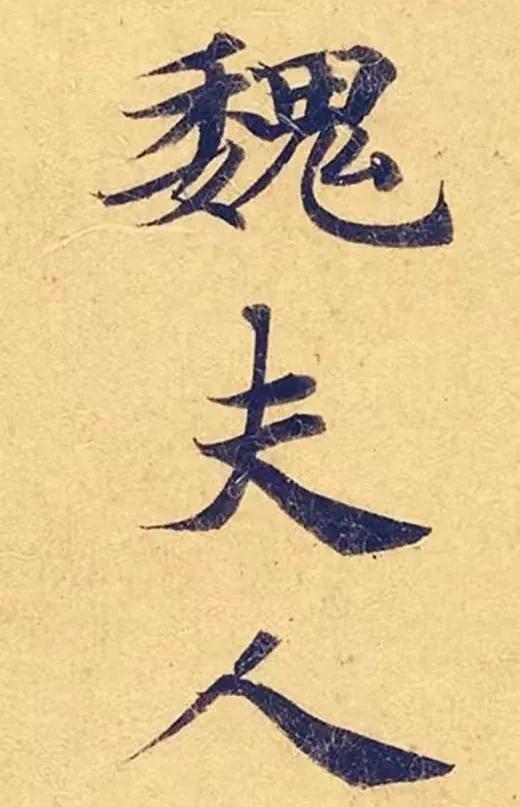 魏夫人